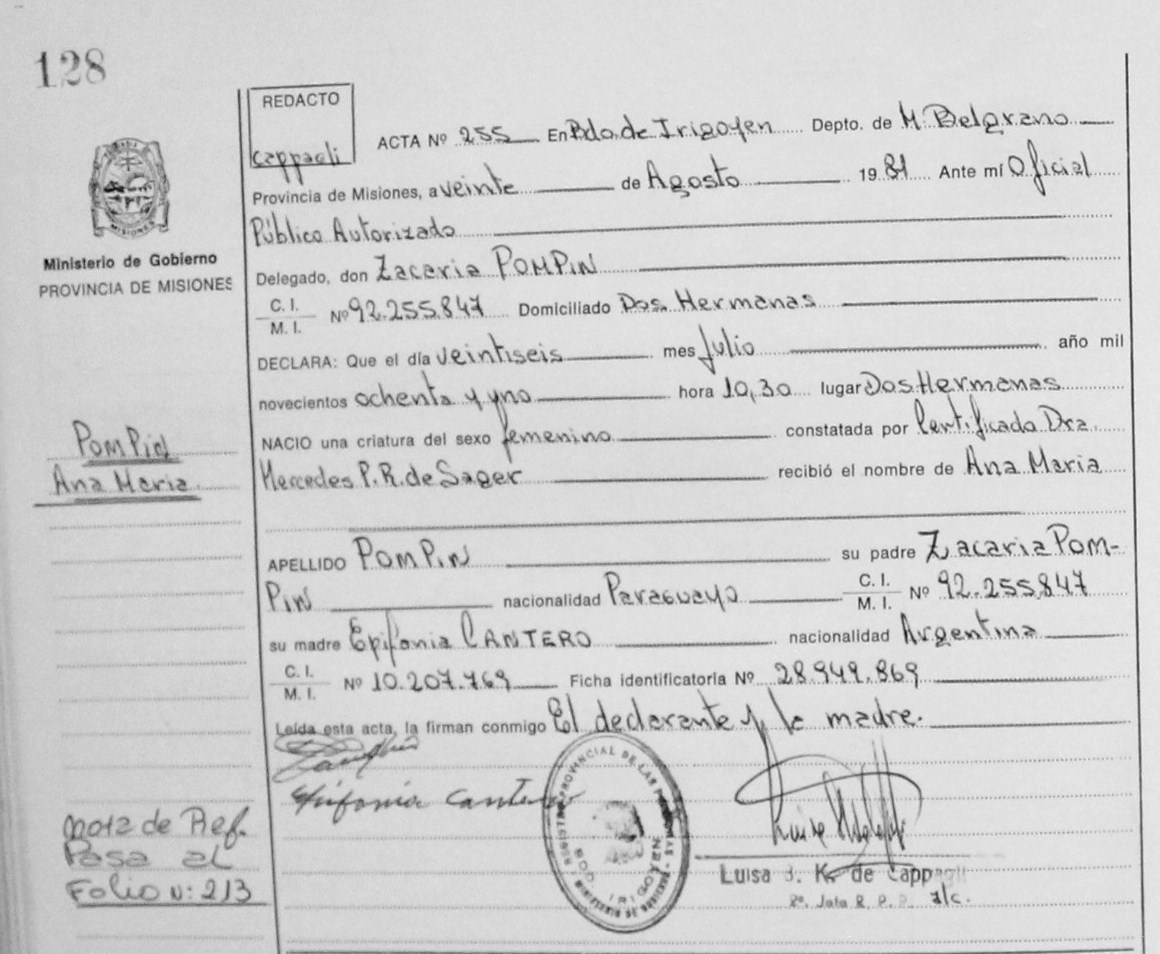 128
REDACTO
Cappagli
ACTA Nº 255 En Bdo. de Irigoyen Depto. de M. Belgrano
Provincia de Misiones, a veinte de Agosto 19 81 Ante mí Oficial
Público Autorizado
Delegado, don Zacaria POMPIN
C. I.
M. I. Nº 92.255.847 Domiciliado Dos Hermanas
DECLARA: Que el día veintiseis mes Julio año mil
novecientos ochenta y uno hora 10,30 lugar Dos Hermanas
NACIO una criatura del sexo femenino constatada por Certificado Dra.
Mercedes P. R. de Sager recibió el nombre de Ana Maria
APELLIDO POMPIN su padre Zacaria POM-
PIN nacionalidad Paraguayo C. I. M. I. Nº 92.255.847
su madre Epifania CANTERO nacionalidad Argentina
C. I.
M. I. Nº 10.207.769 Ficha identificatoria Nº 28.949.869
Leída esta acta, la firman conmigo El declarante y la madre.
Epifania Cantero
Luisa J. K. de Cappagli
2º. Jefa R. P. P. a/c.
MISIONES
Ministerio de Gobierno
PROVINCIA DE MISIONES
POMPIN
Ana Maria
Nota de Ref.
Pasa al
Folio N: 213
REGISTRO PROVINCIAL DE LAS PERSONAS
BDO. IRIGOYEN